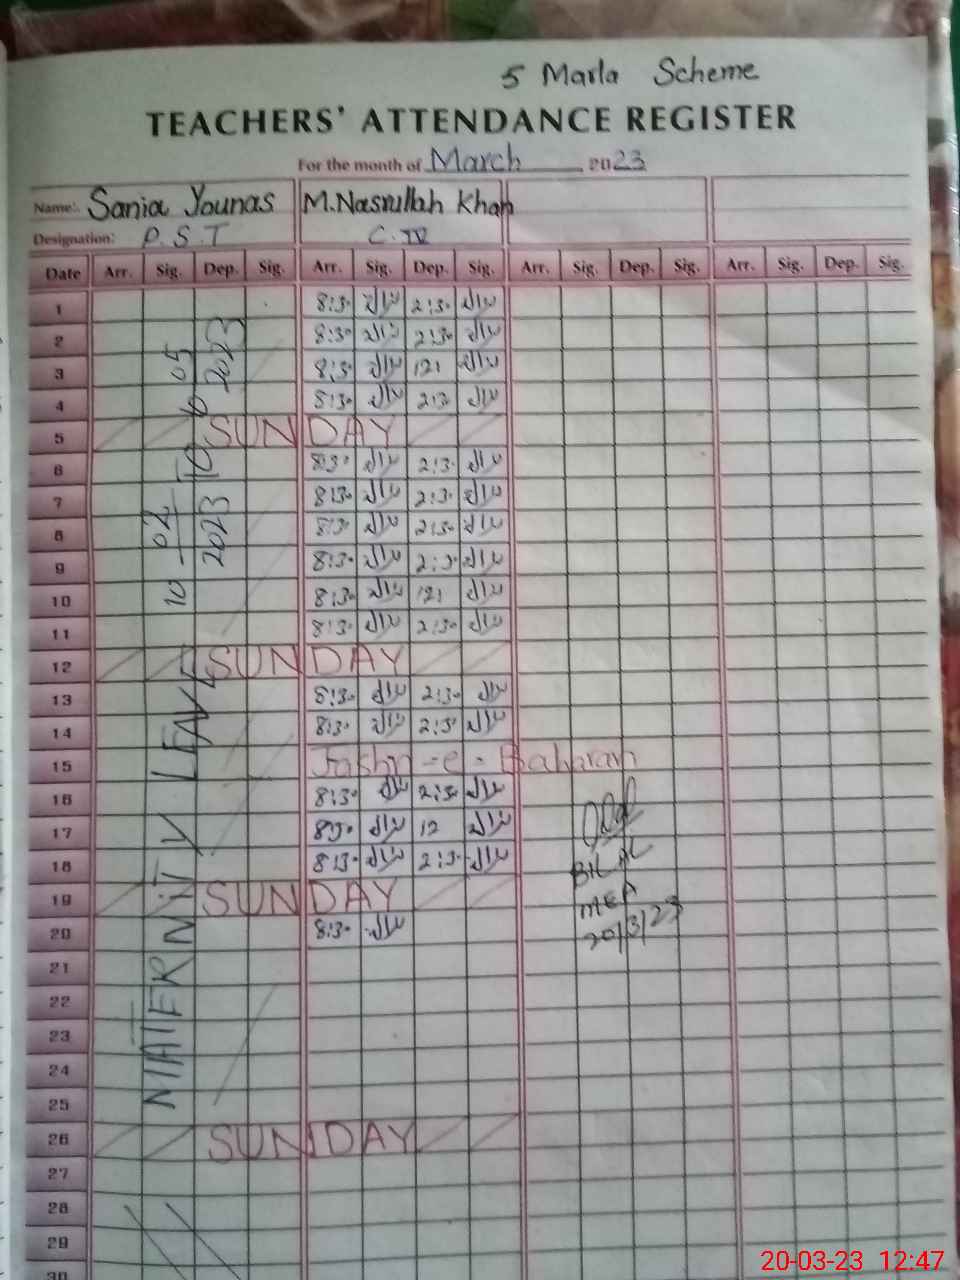 5 Marla Scheme
TEACHERS' ATTENDANCE REGISTER
For the month of March 2023
Name:. Sania Younas M.Nasrullah Khan
Designation: P.S.T C.IV
Date Arr. Sig. Dep. Sig. Arr. Sig. Dep. Sig. Arr. Sig. Dep. Sig. Arr. Sig. Dep. Sig.
MATERNITY LEAVE 10-02-2023 To 10-05-2023
1 8:30 2:30
2 8:30 2:30
3 8:30 12:
4 8:30 2:30
5 SUNDAY
6 8:30 2:30
7 8:30 2:30
8 8:30 2:30
9 8:30 2:30
10 8:30 12:
11 8:30 2:30
12 SUNDAY
13 8:30 2:30
14 8:30 2:30
15 Jashn-e-Baharan
16 8:30 2:30
17 8:30 12
18 8:30 2:30
BILAL
19 SUNDAY
MEA
20 8:30
20/3/23
21
22
23
24
25
26 SUNDAY
27
28
29
30
20-03-23 12:47